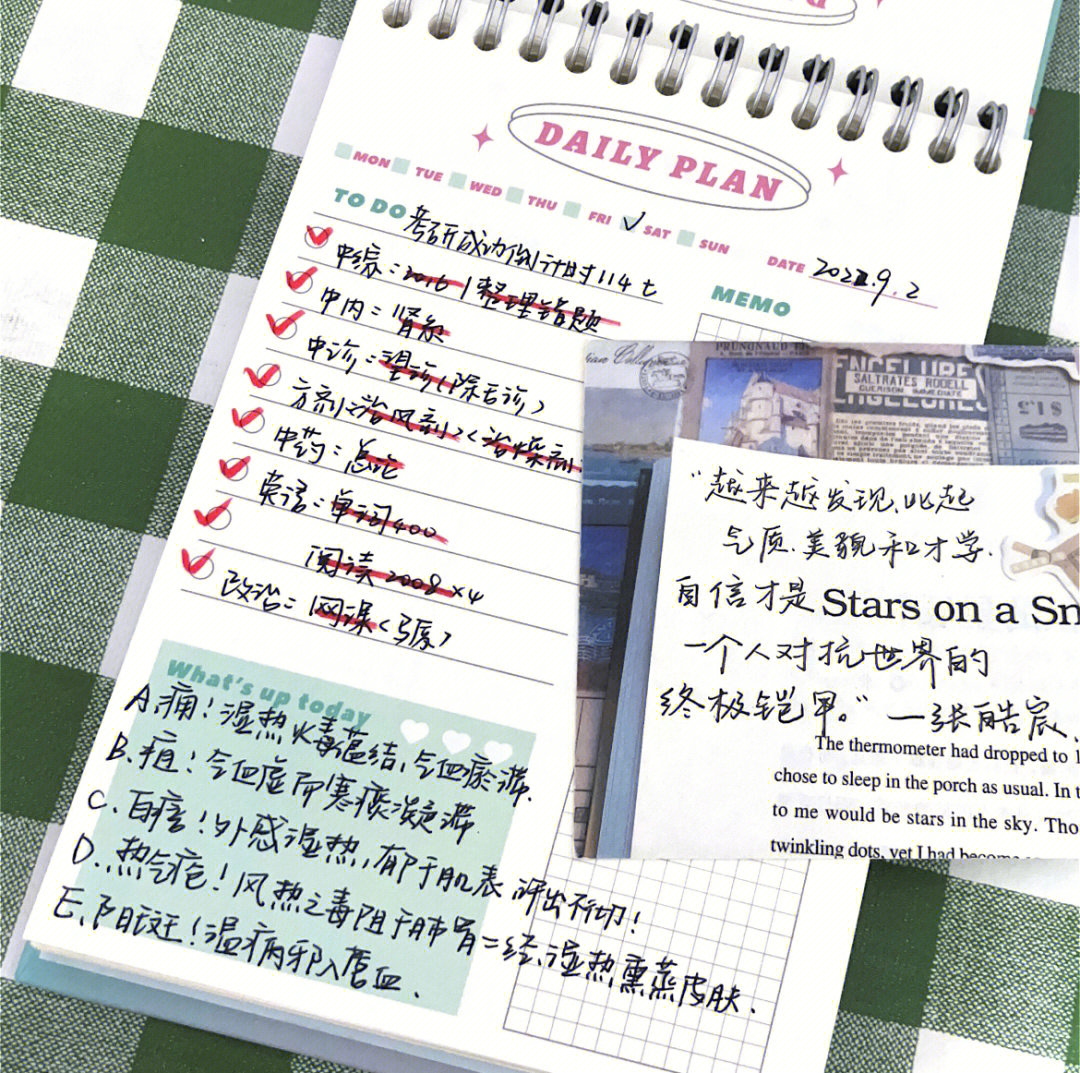 DAILY PLAN
MON TUE WED THU FRI SAT SUN
DATE 2022.9.2
TO DO 考研成功倒计时114t
中综：2016 / 整理错题
中内：肾系
中诊：望诊（除舌诊）
方剂：治风剂、治燥剂
中药：总论
英语：单词400
阅读 2008 ×4
政治：网课（张）
MEMO
What's up today
A.痈！湿热火毒蕴结、气血瘀滞.
B.疽！气血虚而寒痰凝滞
C.白㾦！外感湿热，郁于肌表，汗出不彻！
D.热气疮！风热之毒阻于肺胃二经、湿热熏蒸皮肤.
E.阳斑！温病邪入营血.
PRUNGNAUD
ENGELURES
SALTRATES RODELL
GUERISON IMMEDIATE
"越来越发现，比起
气质、美貌和才学.
自信才是 Stars on a Sn
一个人对抗世界的
终极铠甲。" —张皓宸.
The thermometer had dropped to 1
chose to sleep in the porch as usual. In t
to me would be stars in the sky. Tho
twinkling dots, yet I had become